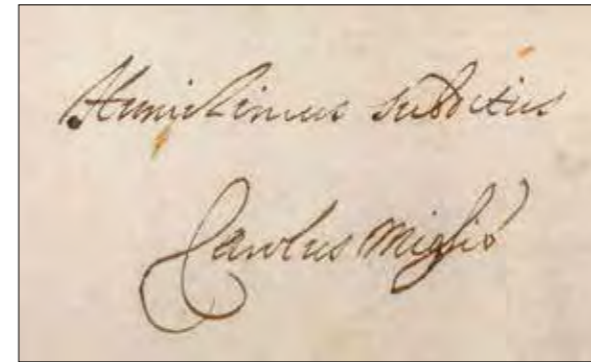 Humilimus subditus
Carolus Miglio